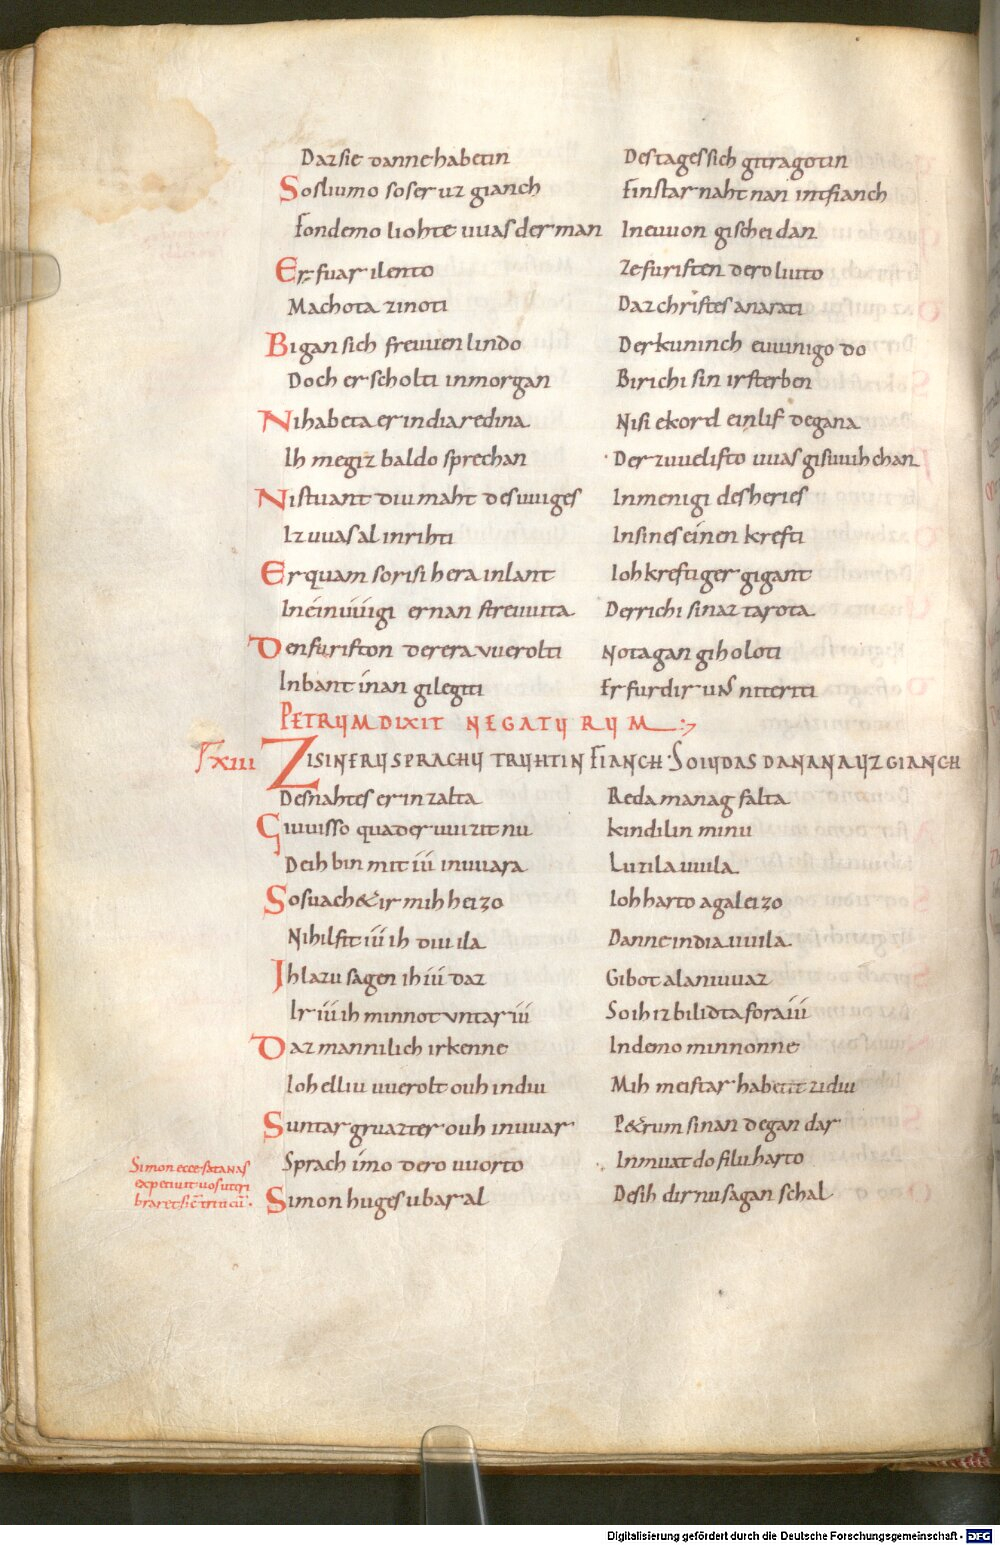 Dazsie dannehabetin Destagessich gitragotin
Sosliumo soser uz gianch Finstar naht nan intfianch
Fondemo liohte uuas der man Ineuuon gischeidan
Er fuar ilento Zefuristen dero liuto
Machota zinoti Dazchristes anarati
Bigan sich freuuen lindo Derkuninch euuinigo do
Doch er scholti inmorgan Birichi sin irsterben
Nihabeta er india redina Nisi ekord einlif degana
Ih megiz baldo sprechan Der zuuelifto uuas gisuuihchan
Nistuant diu maht des uuiges Inmenigi desheries
Iz uuas al inrihti Insines einen krefti
Er quam sorisi hera inlant Ioh kreftiger gigant
Ineinuuigi er nan streuuita Derrichi sinaz tarota
Den furiston derera vuerolti Notagan giholoti
Inbant inan gilegiti Er furdir uns nitteriti
PETRUM DIXIT NEGATURUM
XIII ZISINERU SPRACHU TRUHTIN FIANCH · SO IUDAS DANANA UZ GIANCH
Desnahtes er in zalta Reda manag falta
Giuuisso quad er uuizit nu kindilin minu
Deih bin mit iu inuuara Luzila uuila
Sosuach& ir mih heizo Ioh harto agaleizo
Nihilfit iu ih diu ila Danne india uuila
Ih lazu sagen ih iu daz Gibot alaniuuaz
Ir iu ih minnot vntar iu So ih iz bilidta fora iu
Daz mannilich irkenne Indemo minnonne
Ioh elliu uuerolt ouh indiu Mih meistar habetit zidiu
Suntar gruazter ouh inuuar P&rum sinan degan dar
Sprach imo dero uuorto Inmuat do filu harto
Simon huges ubar al Desih dir nu sagan schal
Simon ecce satanas
expetiuit uos ut cri
braret sic triticū.
Digitalisierung gefördert durch die Deutsche Forschungsgemeinschaft - DFG